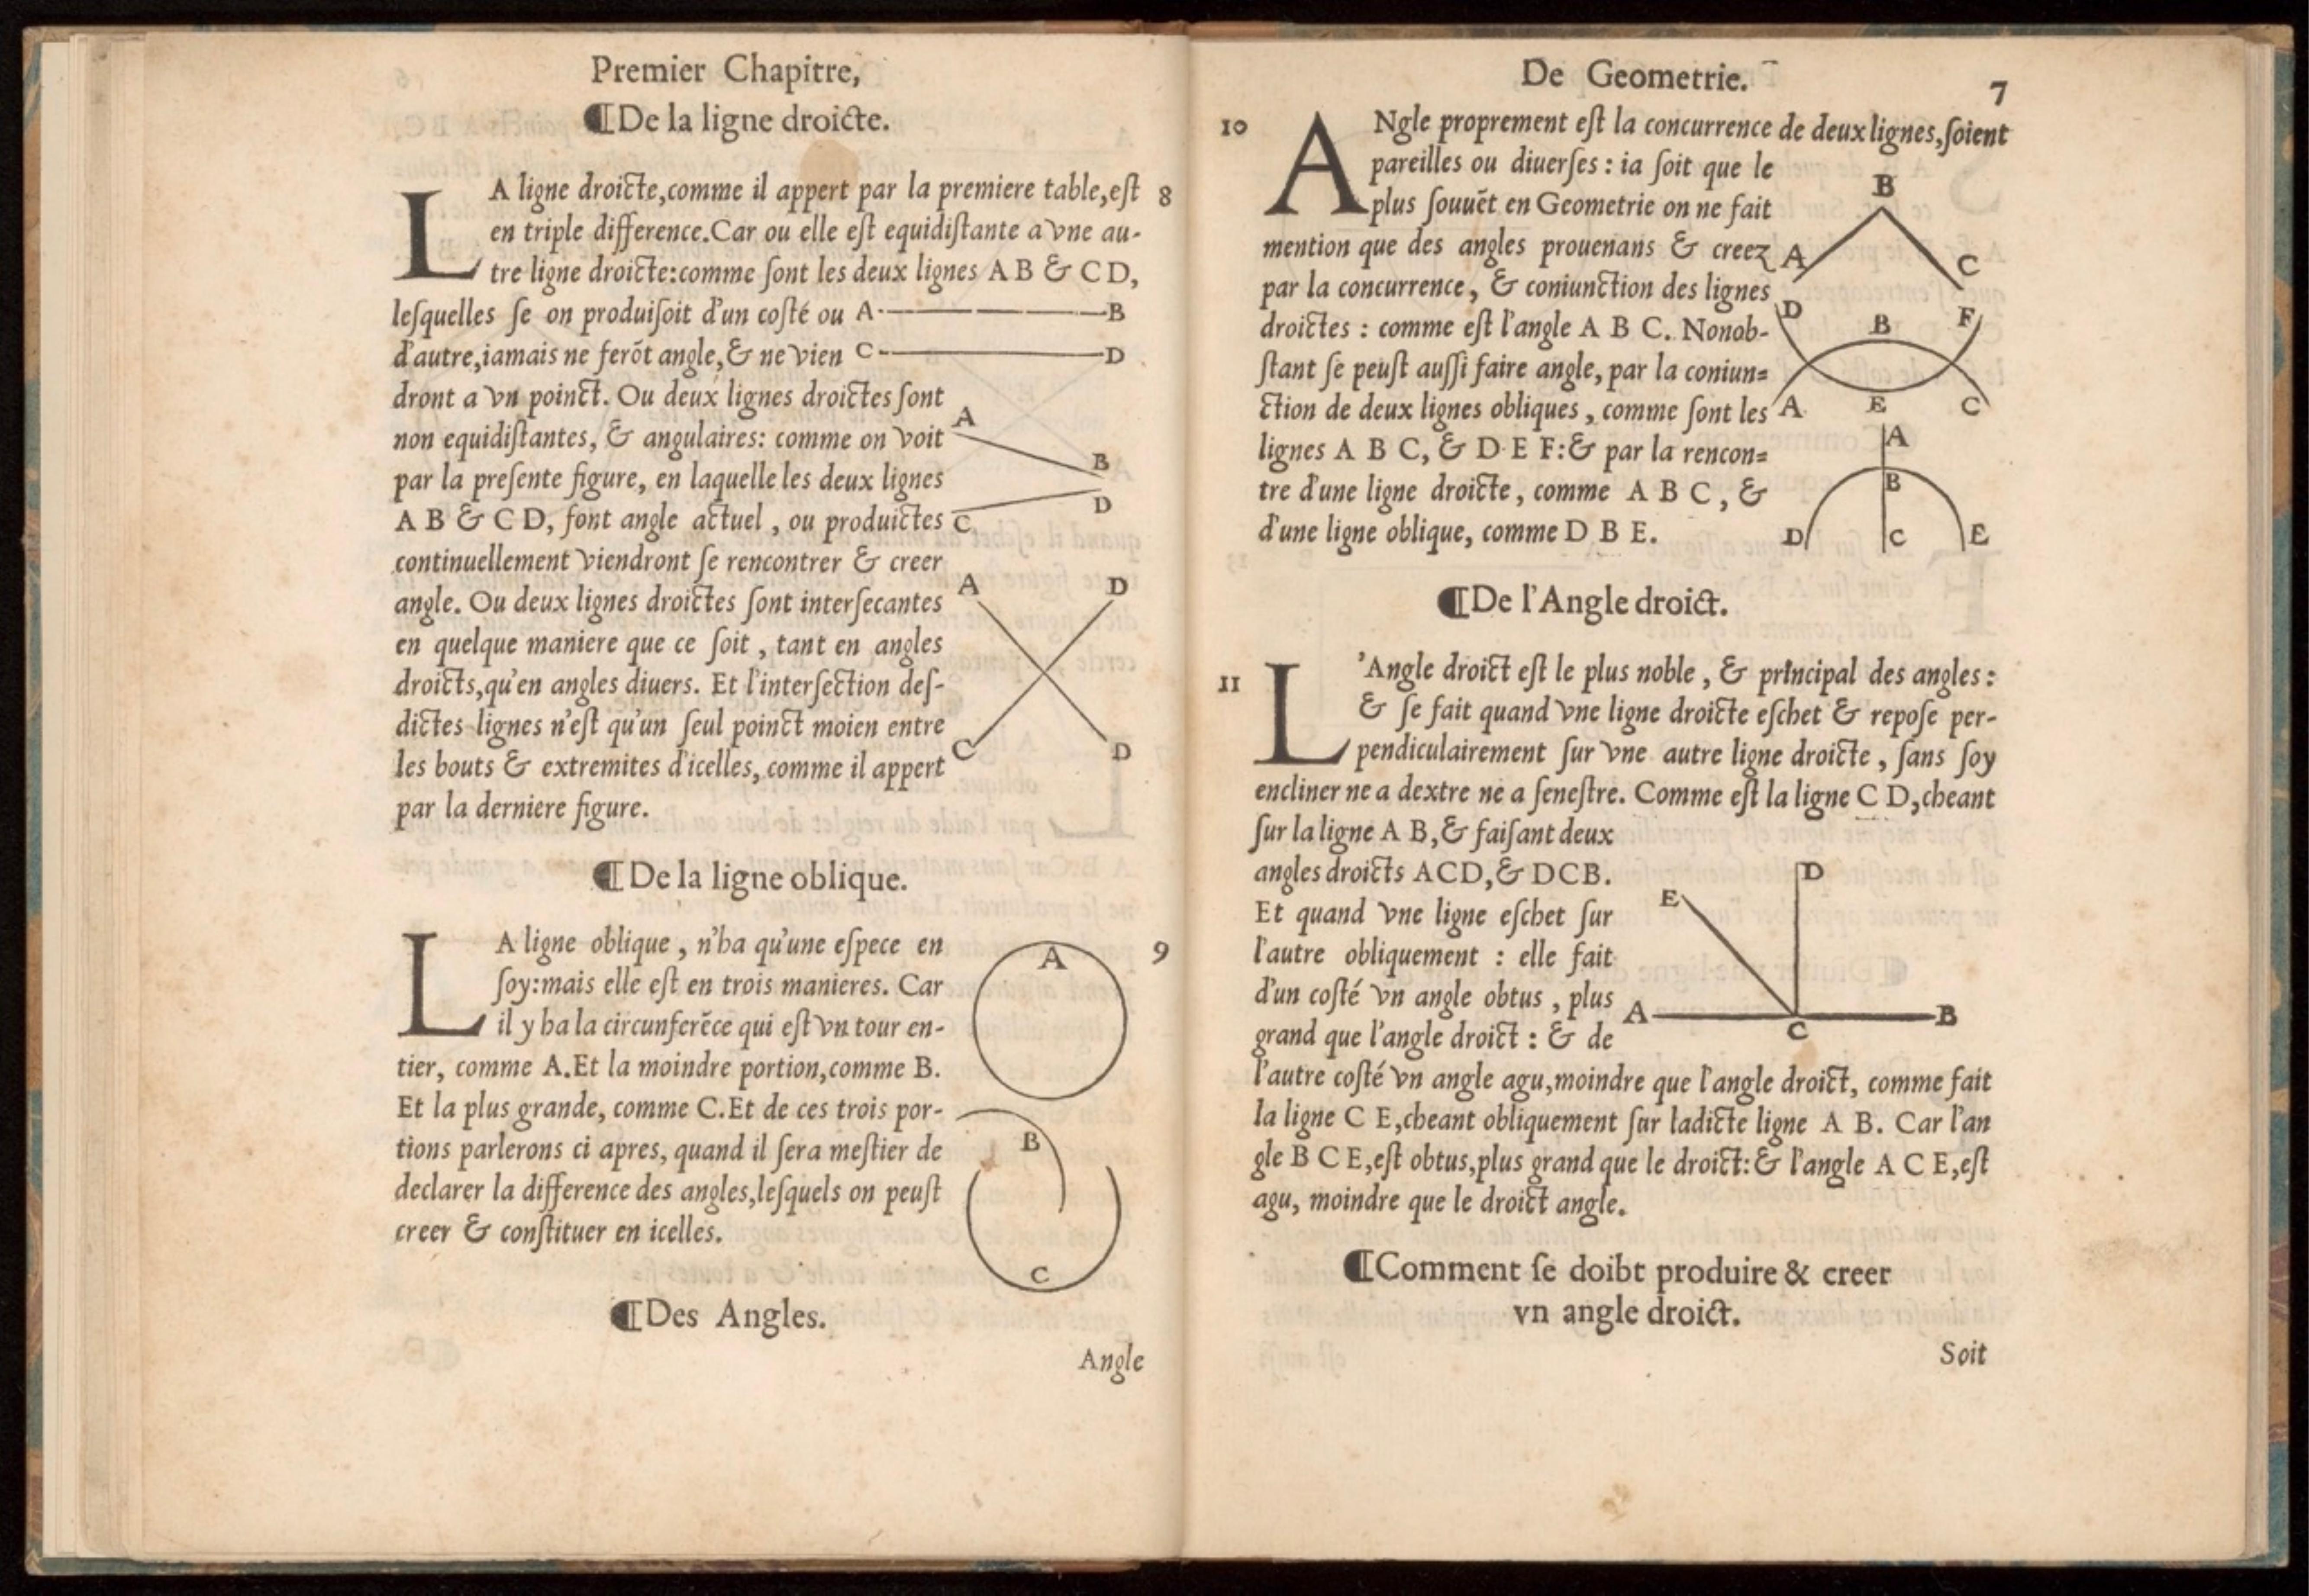 Premier Chapitre,
¶De la ligne droicte.
LA ligne droicte,comme il appert par la premiere table,eſt 8
en triple difference.Car ou elle eſt equidiſtante a vne au-
tre ligne droicte:comme ſont les deux lignes A B & C D,
leſquelles ſe on produiſoit d'un coſté ou A B
d'autre,iamais ne ferõt angle,& ne vien C D
dront a vn poinct. Ou deux lignes droictes ſont
A
non equidiſtantes, & angulaires: comme on voit
B
par la preſente figure, en laquelle les deux lignes
D
A B & C D, font angle actuel , ou produictes C
continuellement viendront ſe rencontrer & creer
A D
angle. Ou deux lignes droictes ſont interſecantes
en quelque maniere que ce ſoit , tant en angles
droicts,qu'en angles diuers. Et l'interſection deſ-
dictes lignes n'eſt qu'un ſeul poinct moien entre
C D
les bouts & extremites d'icelles, comme il appert
par la derniere figure.
¶De la ligne oblique.
LA ligne oblique , n'ha qu'une eſpece en A 9
ſoy:mais elle eſt en trois manieres. Car
il y ha la circunferẽce qui eſt vn tour en-
tier, comme A.Et la moindre portion,comme B.
Et la plus grande, comme C.Et de ces trois por-
tions parlerons ci apres, quand il ſera meſtier de B
declarer la difference des angles,leſquels on peuſt
creer & conſtituer en icelles.
C
¶Des Angles.
Angle
De Geometrie. 7
10 ANgle proprement eſt la concurrence de deux lignes,ſoient
pareilles ou diuerſes : ia ſoit que le
B
plus ſouuẽt en Geometrie on ne fait
mention que des angles prouenans & creez A C
par la concurrence, & coniunction des lignes
D B F
droictes : comme eſt l'angle A B C. Nonob-
ſtant ſe peuſt auſſi faire angle, par la coniun=
ction de deux lignes obliques , comme ſont les A E C
lignes A B C, & D E F:& par la rencon= A
tre d'une ligne droicte, comme A B C , & B
d'une ligne oblique, comme D B E. D C E
¶De l'Angle droict.
11 L'Angle droict eſt le plus noble , & principal des angles :
& ſe fait quand vne ligne droicte eſchet & repoſe per-
pendiculairement ſur vne autre ligne droicte , ſans ſoy
encliner ne a dextre ne a ſeneſtre. Comme eſt la ligne C D,cheant
ſur la ligne A B,& faiſant deux
angles droicts ACD,& DCB. D
Et quand vne ligne eſchet ſur E
l'autre obliquement : elle fait
d'un coſté vn angle obtus , plus A B
grand que l'angle droict : & de C
l'autre coſté vn angle agu,moindre que l'angle droict, comme fait
la ligne C E,cheant obliquement ſur ladicte ligne A B. Car l'an
gle B C E,eſt obtus,plus grand que le droict:& l'angle A C E,eſt
agu, moindre que le droict angle.
¶Comment ſe doibt produire & creer
vn angle droict.
Soit